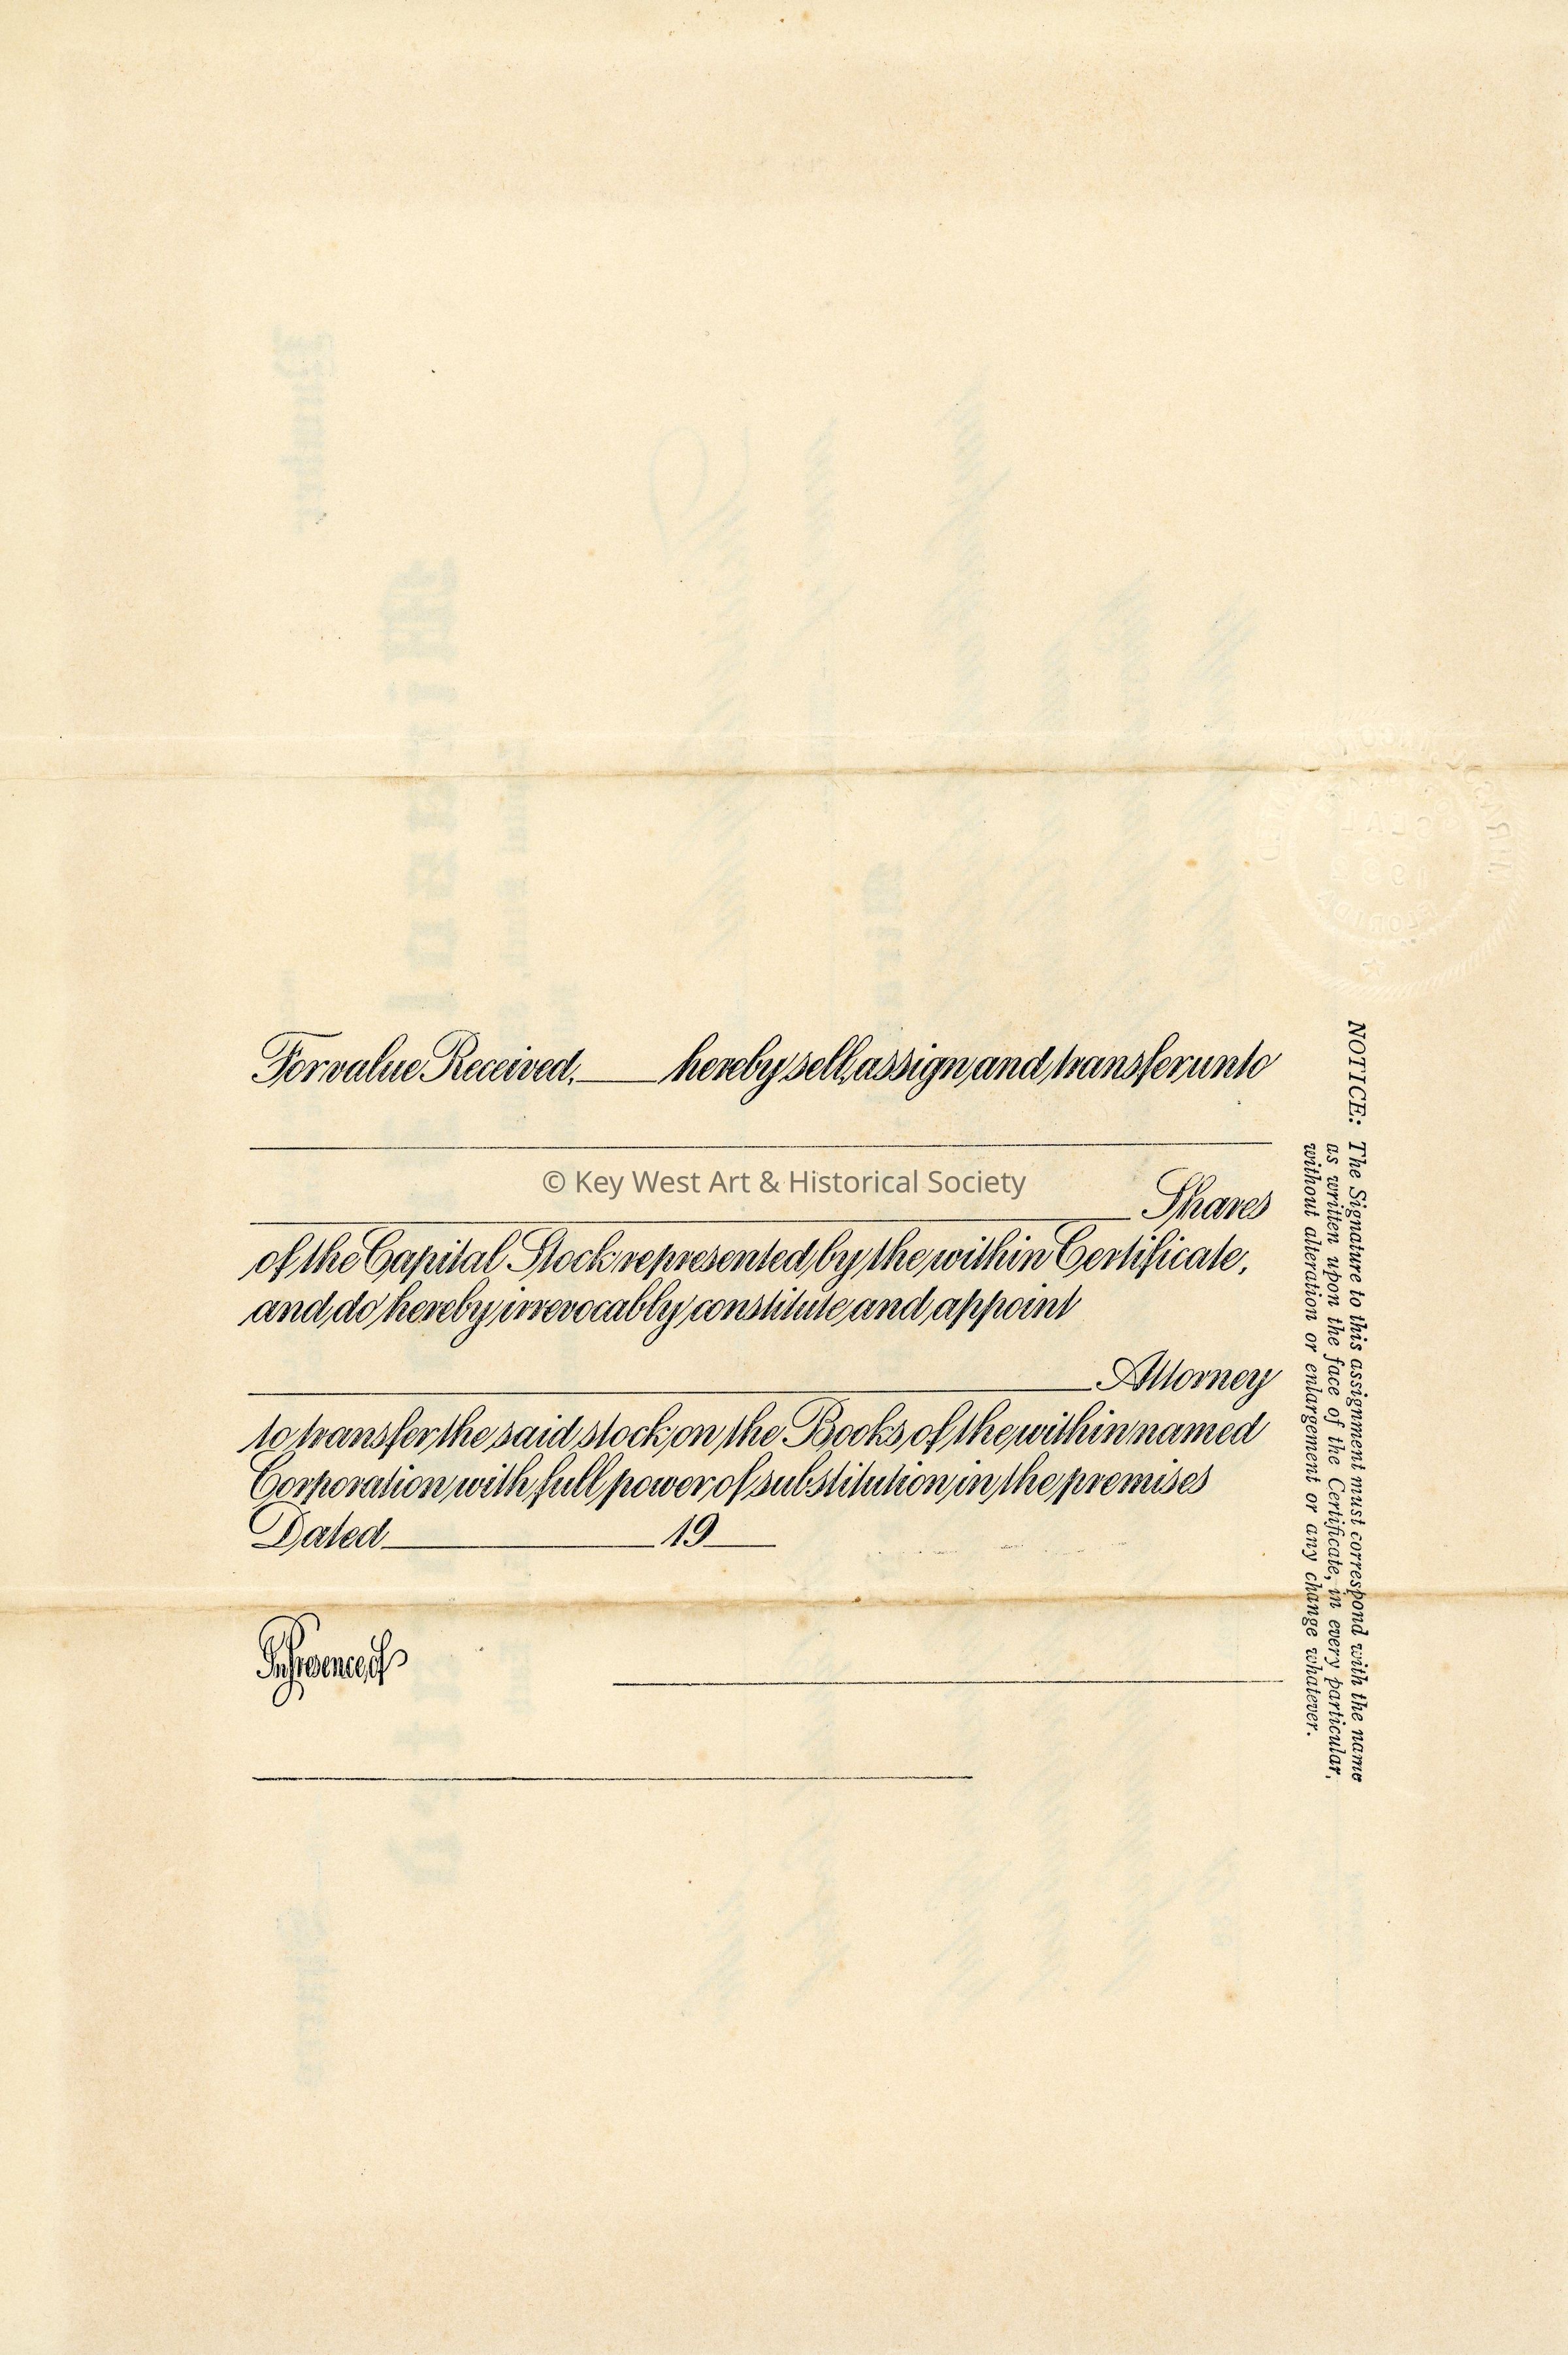 For value Received, ____ hereby sell, assign and transfer unto
____ Shares
of the Capital Stock represented by the within Certificate,
and do hereby irrevocably constitute and appoint
____ Attorney
to transfer the said stock on the Books of the within named
Corporation with full power of substitution in the premises
Dated ____ 19__
In Presence of
NOTICE: The Signature to this assignment must correspond with the name
as written upon the face of the Certificate, in every particular,
without alteration or enlargement or any change whatever.
© Key West Art & Historical Society
SEAL
FLORIDA